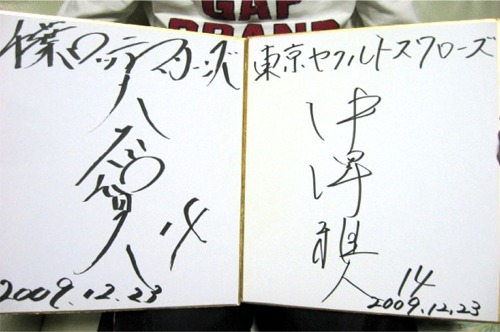 GAP
BRAND
千葉ロッテマリーンズ
大谷智久
14
2009.12.23
東京ヤクルトスワローズ
中澤雅人
14
2009.12.23